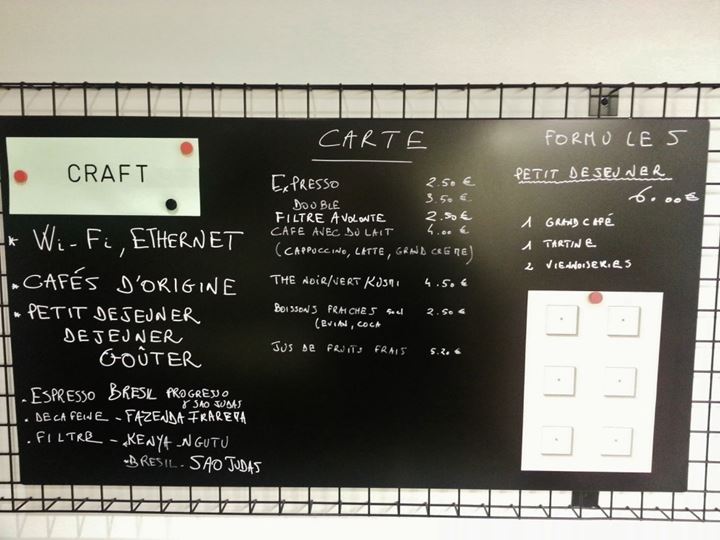 CRAFT
* Wi-Fi, ETHERNET
* CAFÉS D'ORIGINE
* PETIT DEJEUNER
DEJEUNER
GOÛTER
. ESPRESSO BRESIL PROGRESSO
& SAO JUDAS
. DECAFEINE - FAZENDA
. FILTRE - KENYA - NGUTU
BRESIL - SAO JUDAS
CARTE
EXPRESSO 2.50 €
DOUBLE 3.50 €
FILTRE A VOLONTE 2.50 €
CAFE AVEC DU LAIT 4.00 €
(CAPPUCCINO, LATTE, GRAND CREME)
THE NOIR/VERT/KUSMI 4.50 €
BOISSONS FRAICHES 2.50 €
(EVIAN, COCA
JUS DE FRUITS FRAIS 5.20 €
FORMULES
PETIT DEJEUNER
6.00 €
1 GRAND CAFÉ
1 TARTINE
2 VIENNOISERIES